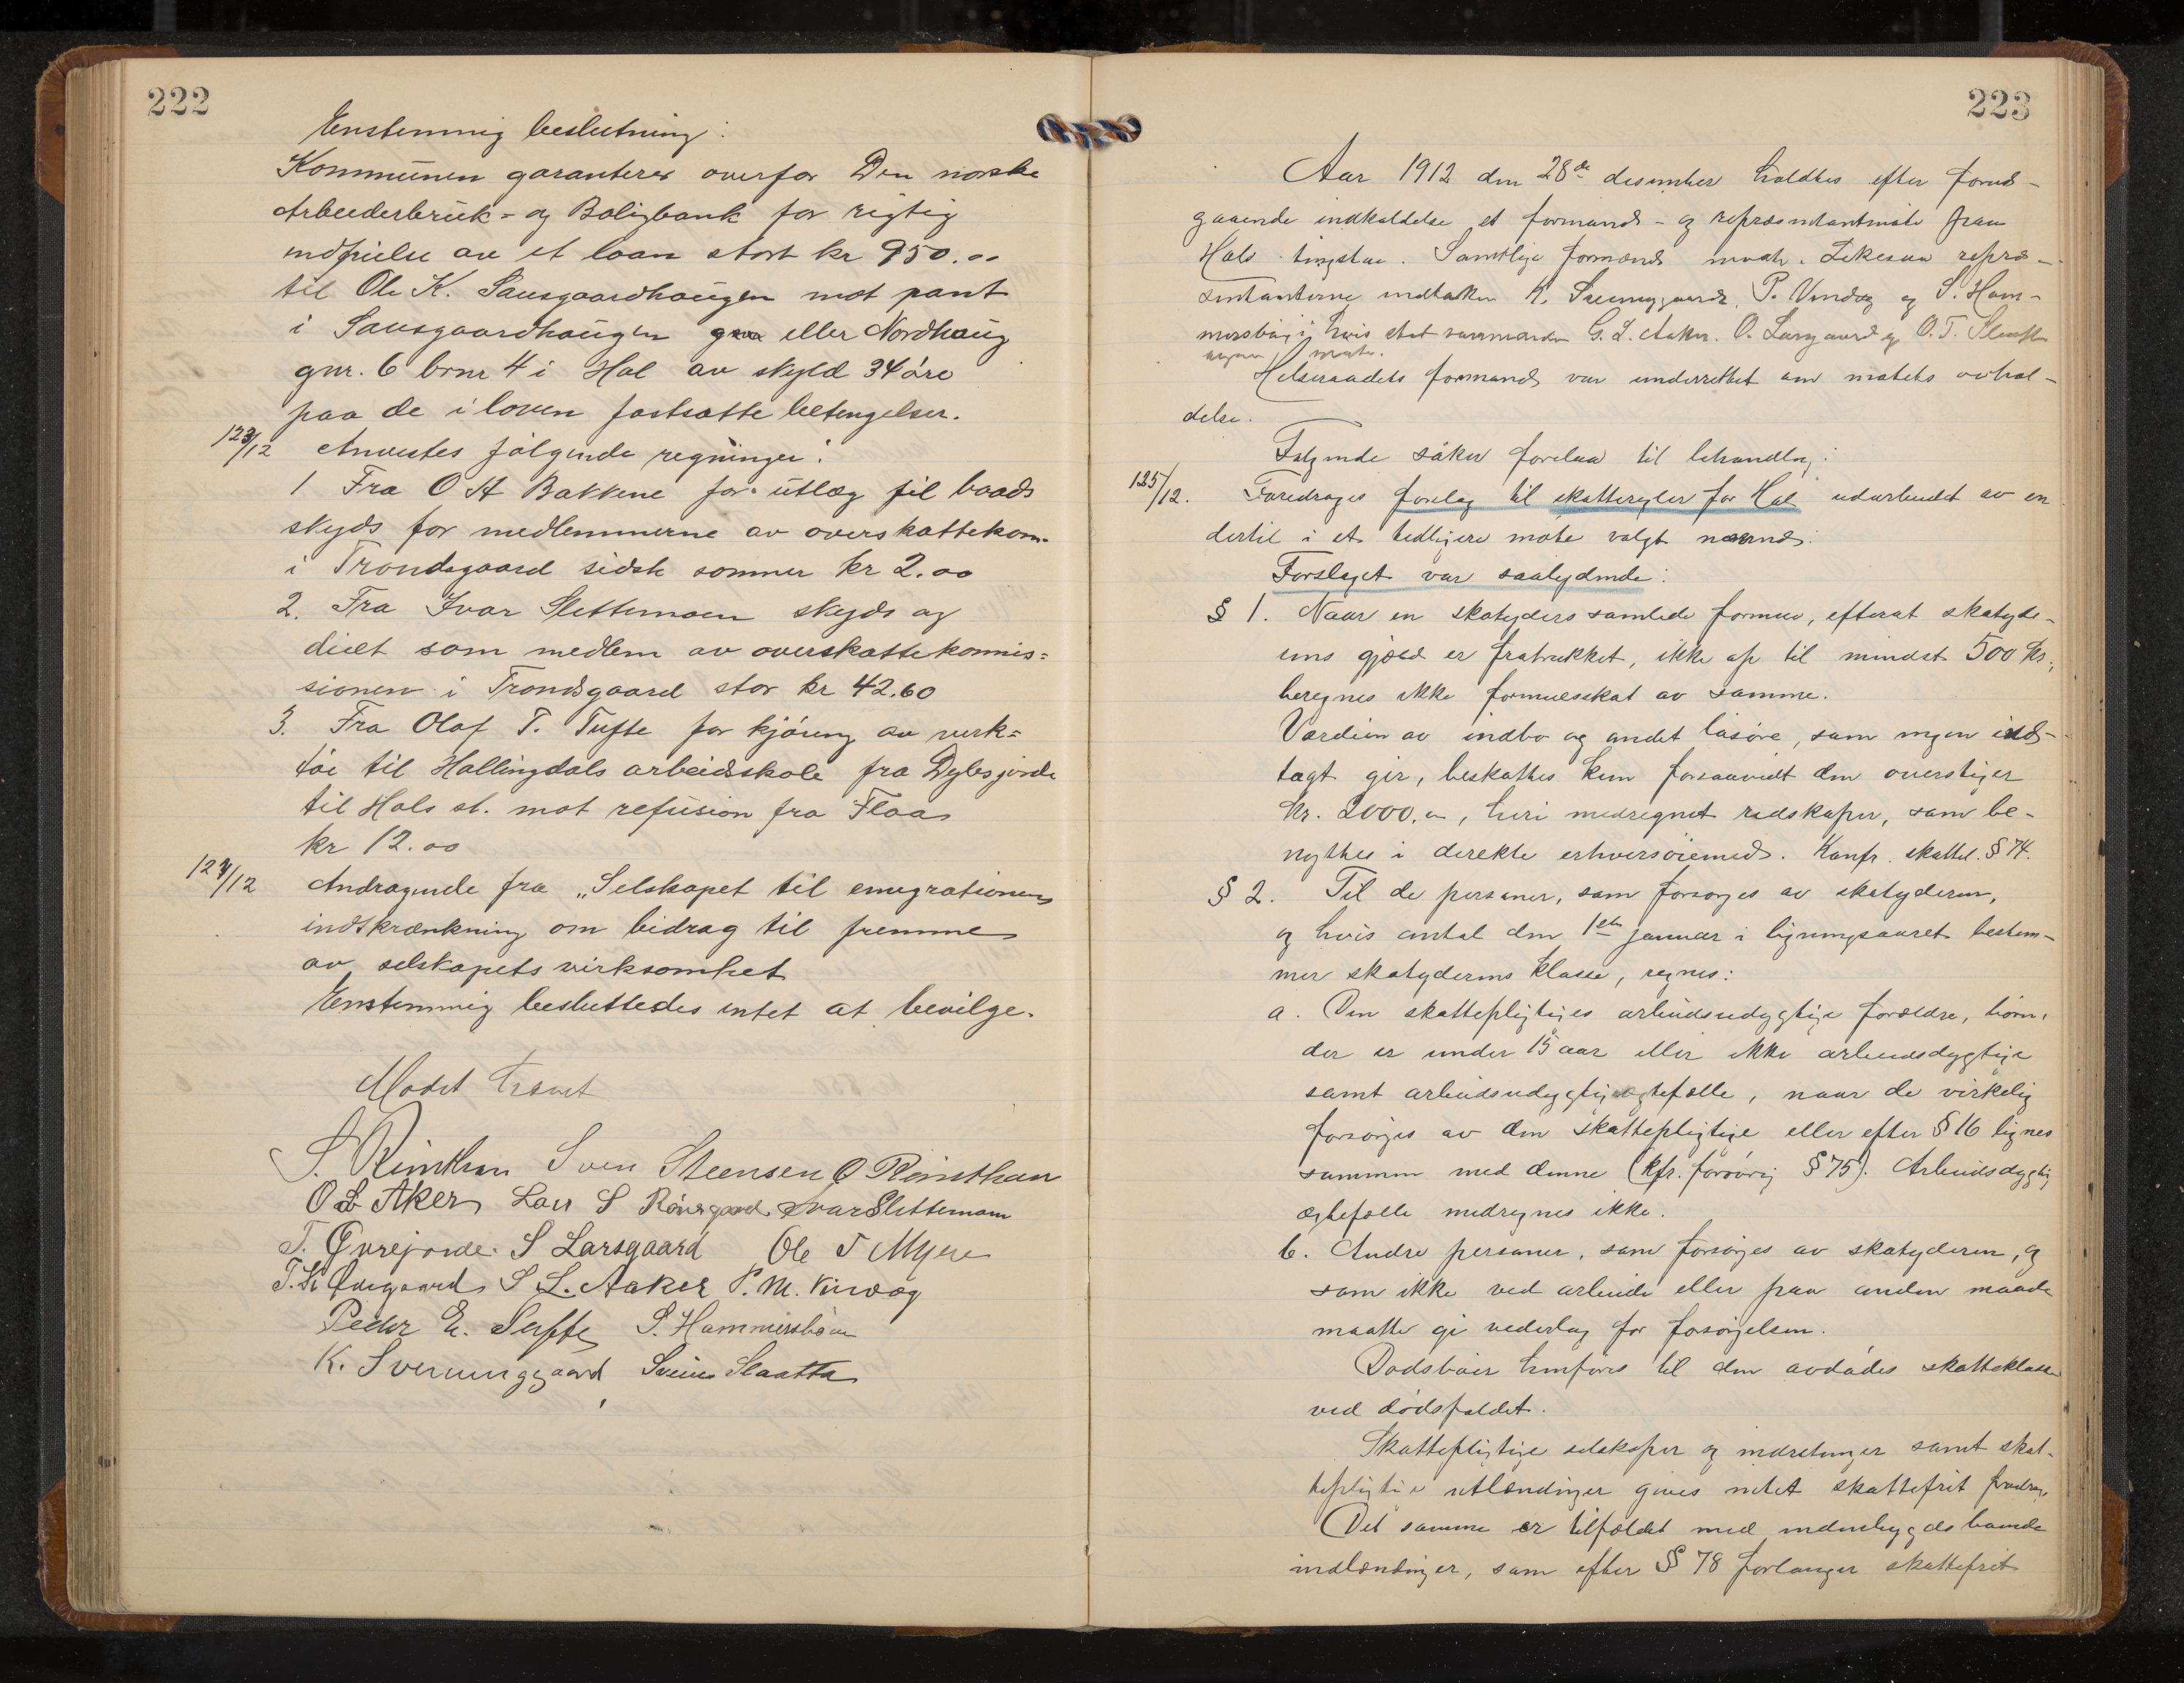 222
Enstemmig beslutning:
Kommunen garanterer overfor Den norske
Arbeiderbruk- og Boligbank for rigtig
indfrielse av et laan stort kr 950.00
til Ole K. Sausgaardhaugen mot pant
i Sausgaardhaugen eller Nordhaug
gnr. 6 brnr 4 i Hol av skyld 34 øre
paa de i loven fastsatte betengelser.
123/12 Anvistes følgende regninger:
1 Fra O A Bakkene for utlæg til baads
skyds for medlemmerne av overskattekom.
i Trondsgaard sidste sommer kr 2.00
2. Fra Ivar Slettemoen skyds og
diæt som medlem av overskattekommis=
sionen i Trondsgaard stor kr 42.60
3. Fra Olaf T. Tufte for kjøring av verk=
tøi til Hallingdals arbeidsskole fra
til Hols st. mot refusion fra Flaa
kr 12.00
124/12 Andragende fra „Selskapet til emigrationens
indskrænkning om bidrag til fremme
av selskapets virksomhet
Enstemmig besluttedes intet at bevilge.
Mødet hævet
Sven Steensen
O L Aker Lars S Ivar Slettemoen
T. Øvrejorde. S Larsgaard Ole T Myren
S L. Aaker P. M.
Peder E. S. Hammersbøen
K. Sveinunggaard Svein Slaatta
223
Aar 1912 den 28de desember holdtes efter forud-
gaaende indkaldelse et formands- og repræsentantmøte paa
Hols tingstue. Samtlige formænd møtte. Likesaa repræ-
sentanterne undtaken K. Sveinunggaard, P. og S. Ham-
mersbøen i hvis sted varamænden G. L. Aaker. O. Larsgaard og O. T. Slaatta
møtte.
Helseraadets formand var underrettet om møtets avhol-
delse.
Følgende saker forelaa til behandling:
125/12. Foredroges forslag til skatteregler for Hol utarbeidet av en
dertil i et tidligere møte valgt nævnd:
Forslaget var saalydende:
§ 1. Naar en skatyders samlede formue, efterat skatyde-
rens gjæld er fratrukket, ikke op til mindst 500 kr.,
beregnes ikke formuesskat av samme.
Værdien av indbo og andet løsøre, som ingen ind-
tægt gir, beskattes kun forsaavidt den overstiger
kr. 2000.00, heri medregnet redskaper, som be-
nyttes i direkte erhversøiemed. Konfr. skattel. § 74.
§ 2. Til de personer, som forsørges av skatyderen,
og hvis antal den 1ste januar i ligningsaaret bestem-
mer skatyderens klasse, regnes:
a. Den skattepligtiges arbeidsudygtige forældre, børn,
der er under 15 aar eller ikke arbeidsdygtige
samt arbeidsudygtig egtefælle, naar de virkelig
forsørges av den skattepligtige eller efter § 16 lignes
sammen med denne (kfr. forøvrig § 75). Arbeidsdygtig
egtefælle medregnes ikke.
b. Andre personer, som forsørges av skatyderen, og
som ikke ved arbeide eller paa anden maade
maatte gi vederlag for forsørgelsen.
Dødsboer henføres til den avdødes skatteklasse
ved dødsfaldet.
Skattepligtige selskaper og indretninger samt skat-
tepligtige utlændinger gives intet skattefrit fradrag.
Det samme er tilfældet med indenbygds boende
indlændinger, som efter § 78 forlanger skattefrit